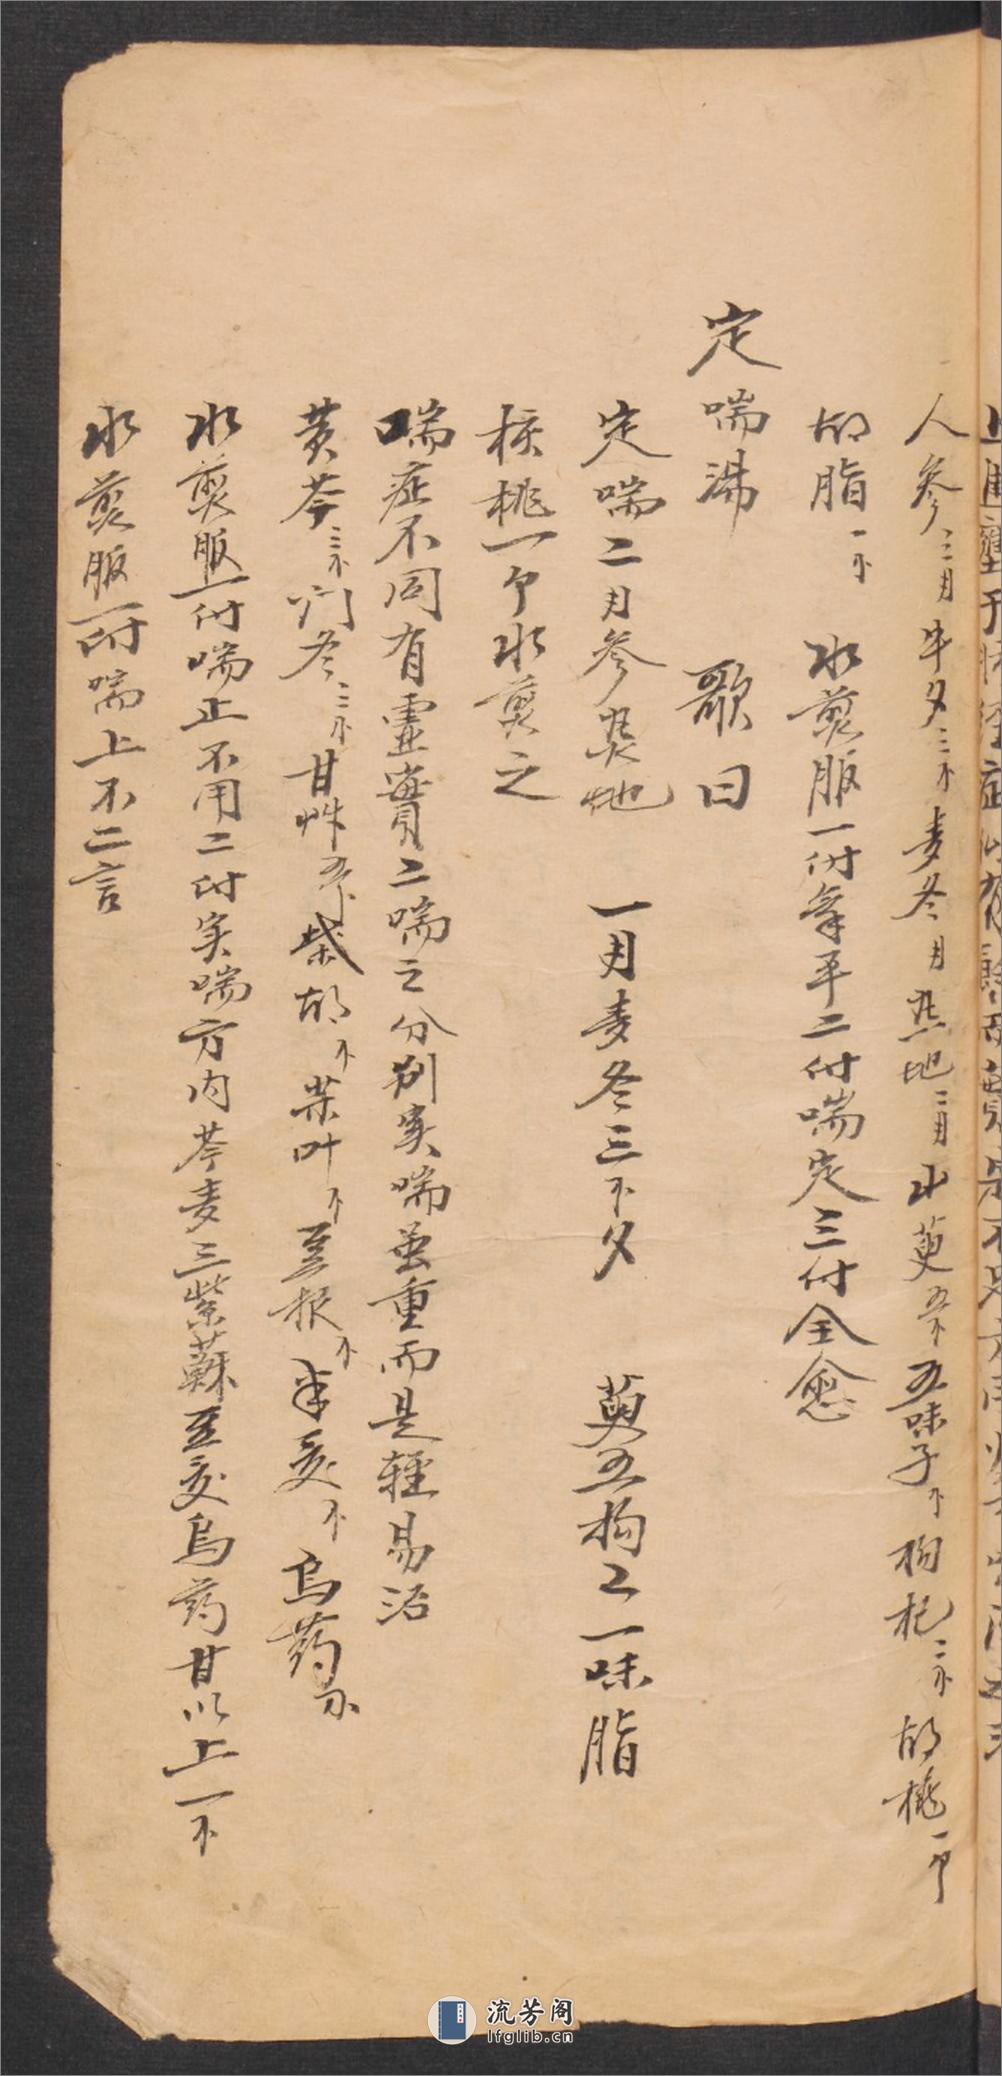 人參三月牛夕三不麦冬月熟地二月山萸五不五味子不枸杞二不胡桃一个
胡脂一不 水煎服一付氣平二付喘定三付全愈
定喘湯 歌曰
定喘二月參熟地 一月麦冬三不夕 萸五枸二一味脂
核桃一个水煎之
喘症不同有虛實二喘之分别实喘虽重而是輕易治
黄芩三不門冬三不甘艸五不柴胡不苏叶不豆根不半夏不烏药不
水煎服一付喘止不用二付实喘方内芩麦三紫蘇豆夏烏药甘以上一不
水煎服一付喘止不二言
流芳阁
lfglib.cn